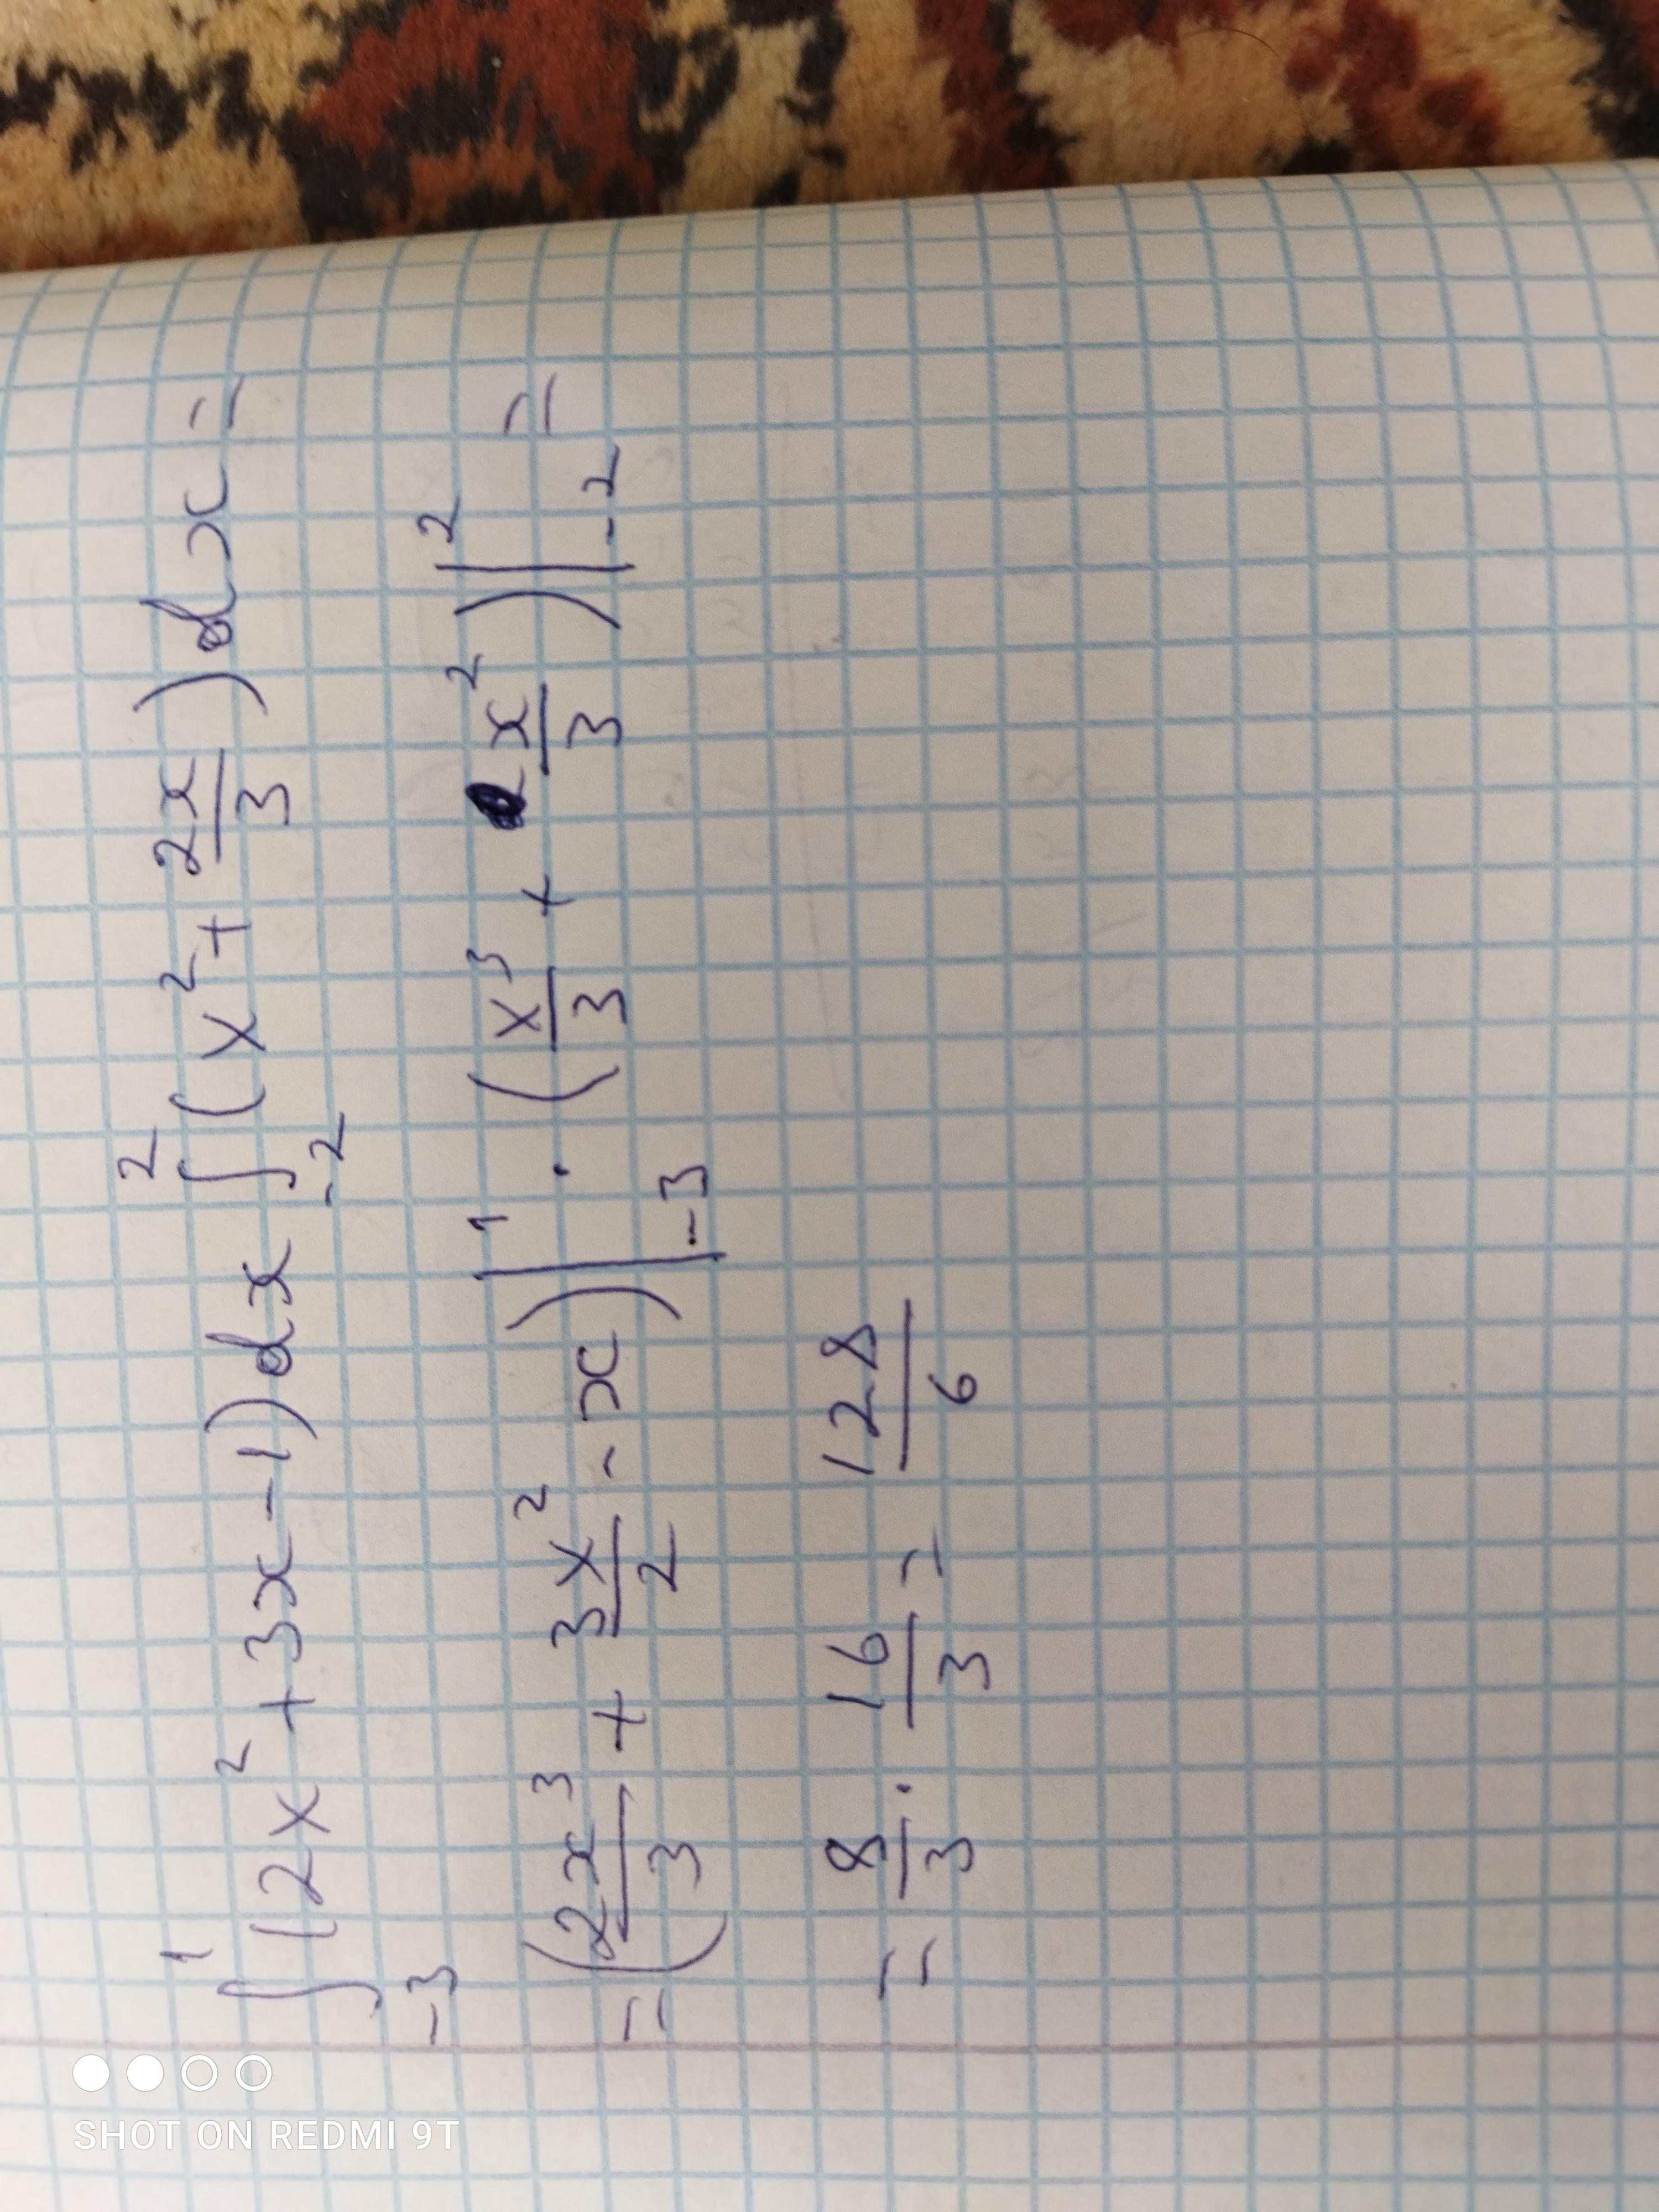 ∫₋₃¹ (2x² + 3x - 1)dx ∫₋₂² (x² + 2x/3)dx =
= (2x³/3 + 3x²/2 - x)|₋₃¹ · (x³/3 + x²/3)|₋₂² =
= 8/3 · 16/3 = 128/6
SHOT ON REDMI 9T